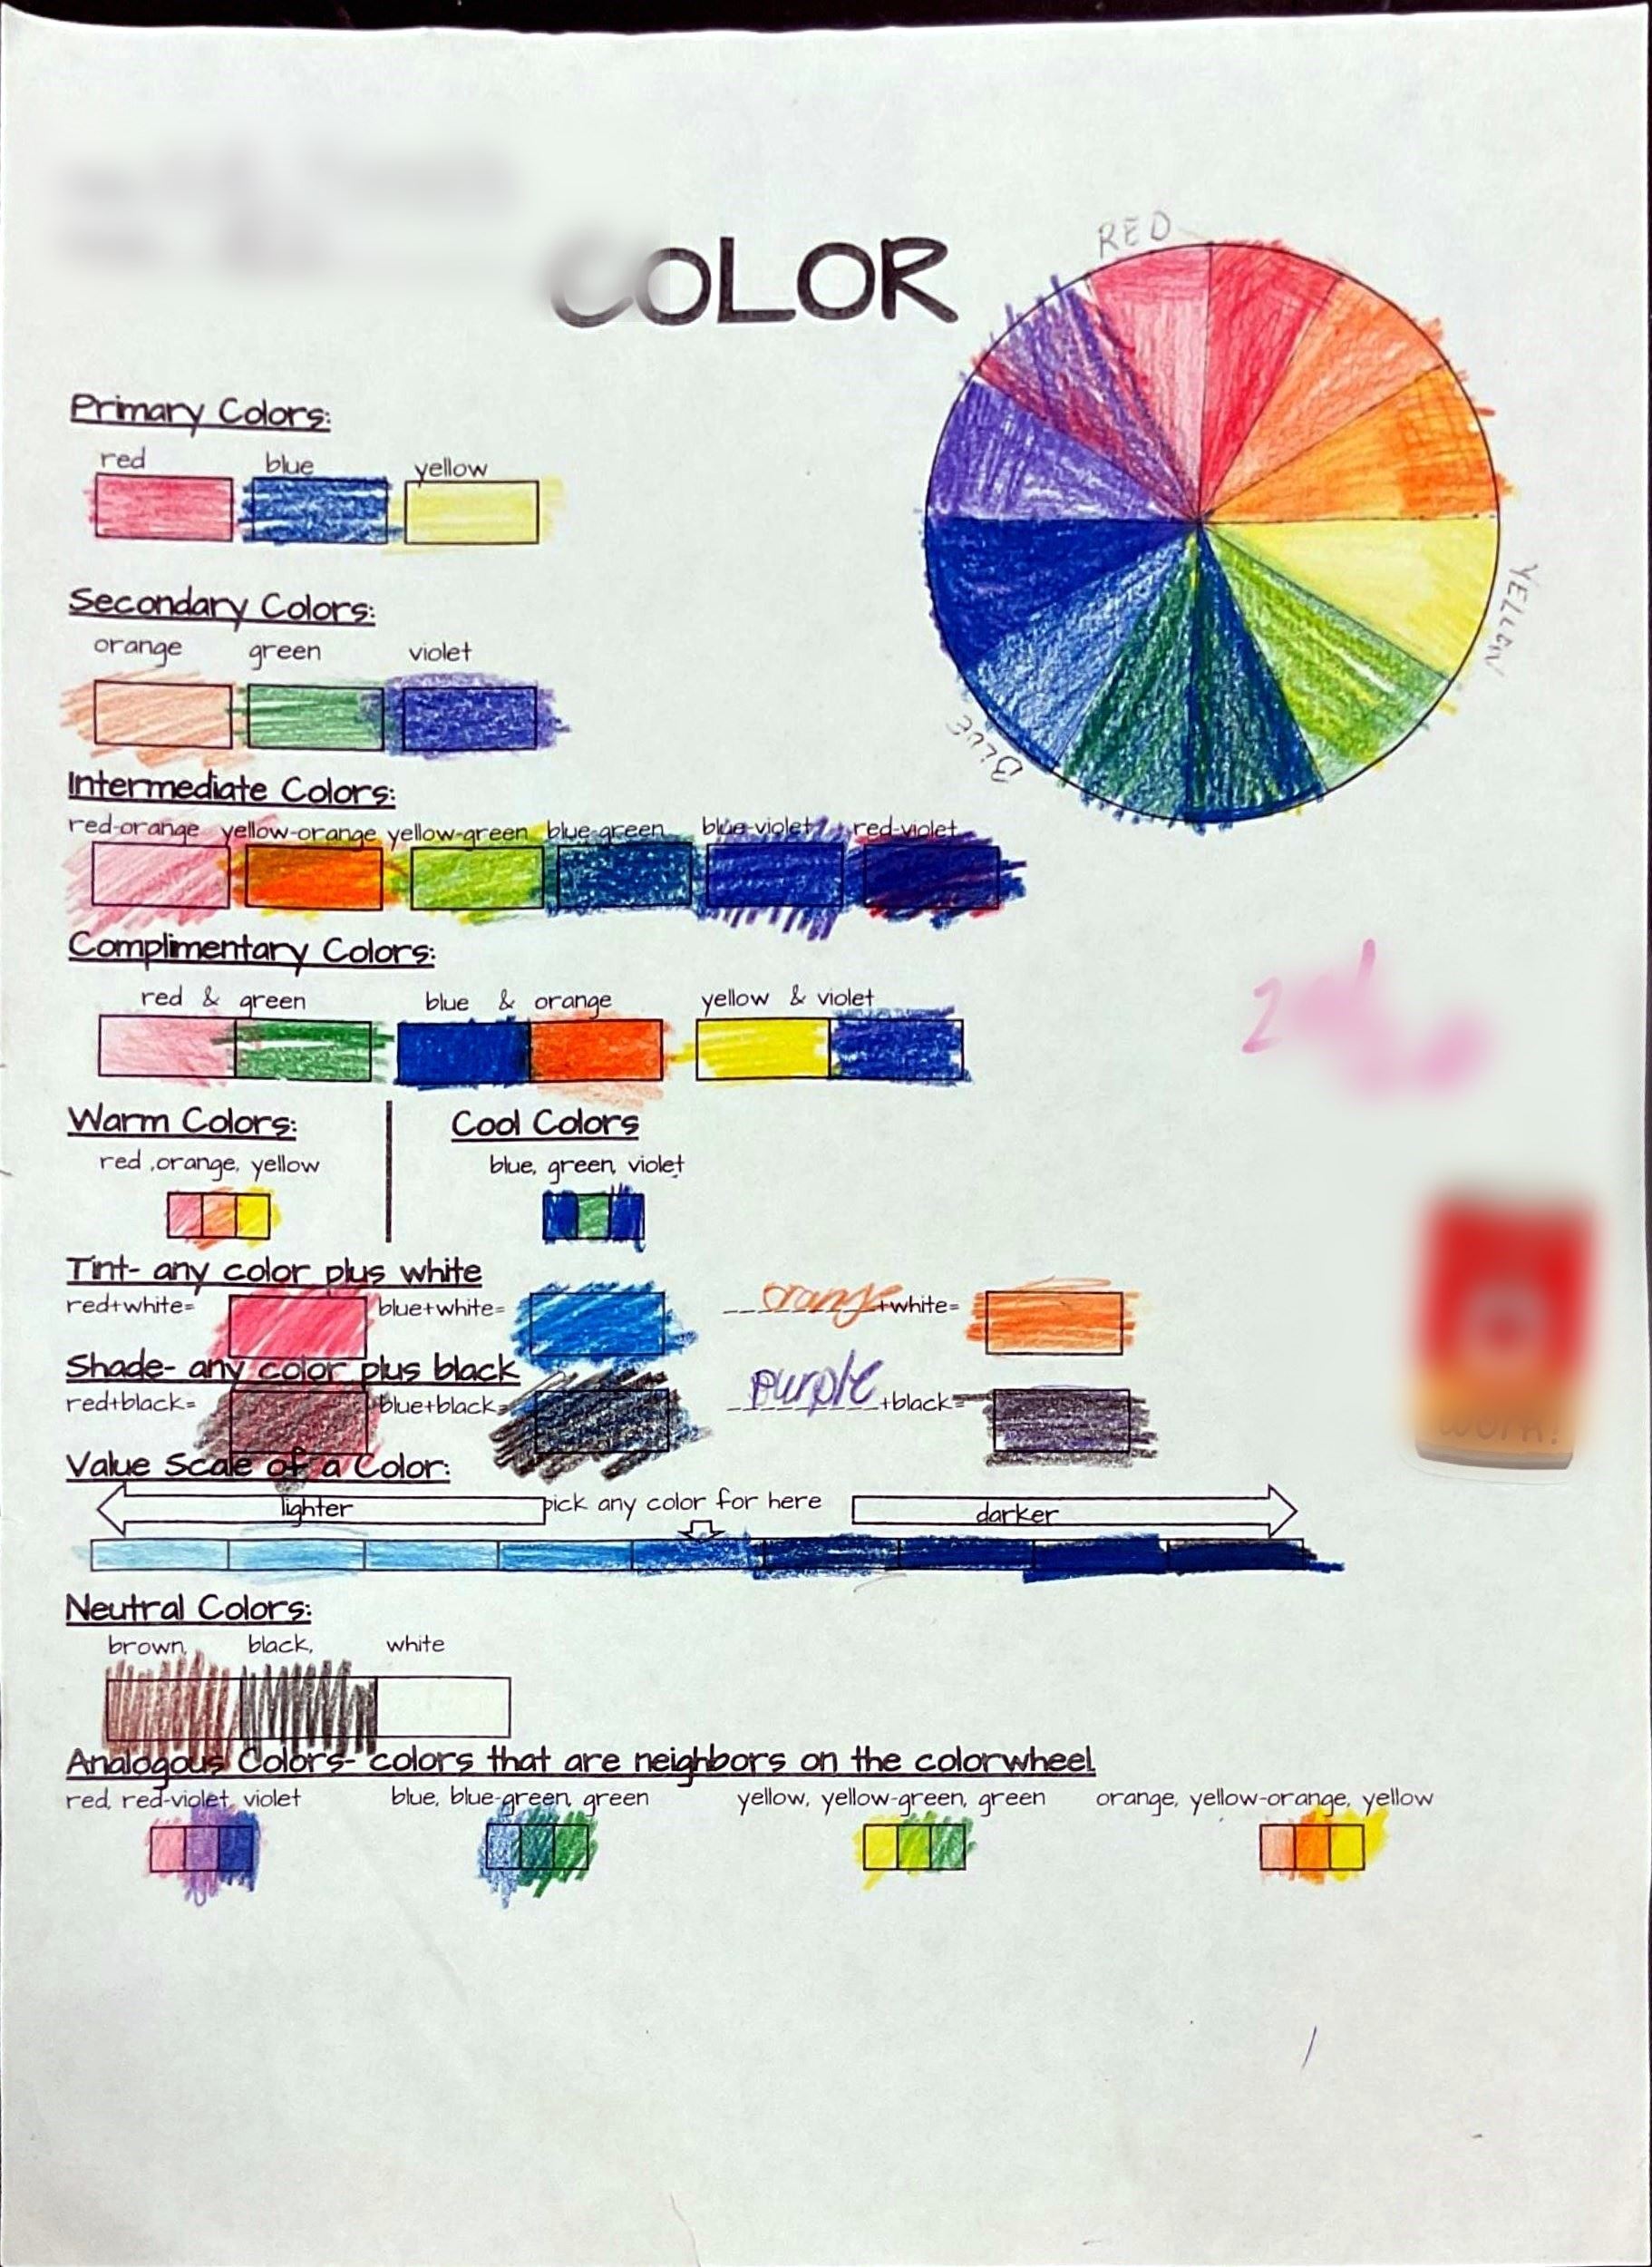 COLOR
RED
YELLOW
BLUE
Primary Colors:
red blue yellow
Secondary Colors:
orange green violet
Intermediate Colors:
red-orange yellow-orange yellow-green blue-green blue-violet red-violet
Complimentary Colors:
red & green blue & orange yellow & violet
Warm Colors: Cool Colors
red ,orange, yellow blue, green, violet
Tint- any color plus white
red+white= blue+white= orang+white=
Shade- any color plus black
red+black= blue+black= purple+black=
Value Scale of a Color:
lighter pick any color for here darker
Neutral Colors:
brown, black, white
Analogous Colors- colors that are neighbors on the colorwheel
red, red-violet, violet blue, blue-green, green yellow, yellow-green, green orange, yellow-orange, yellow